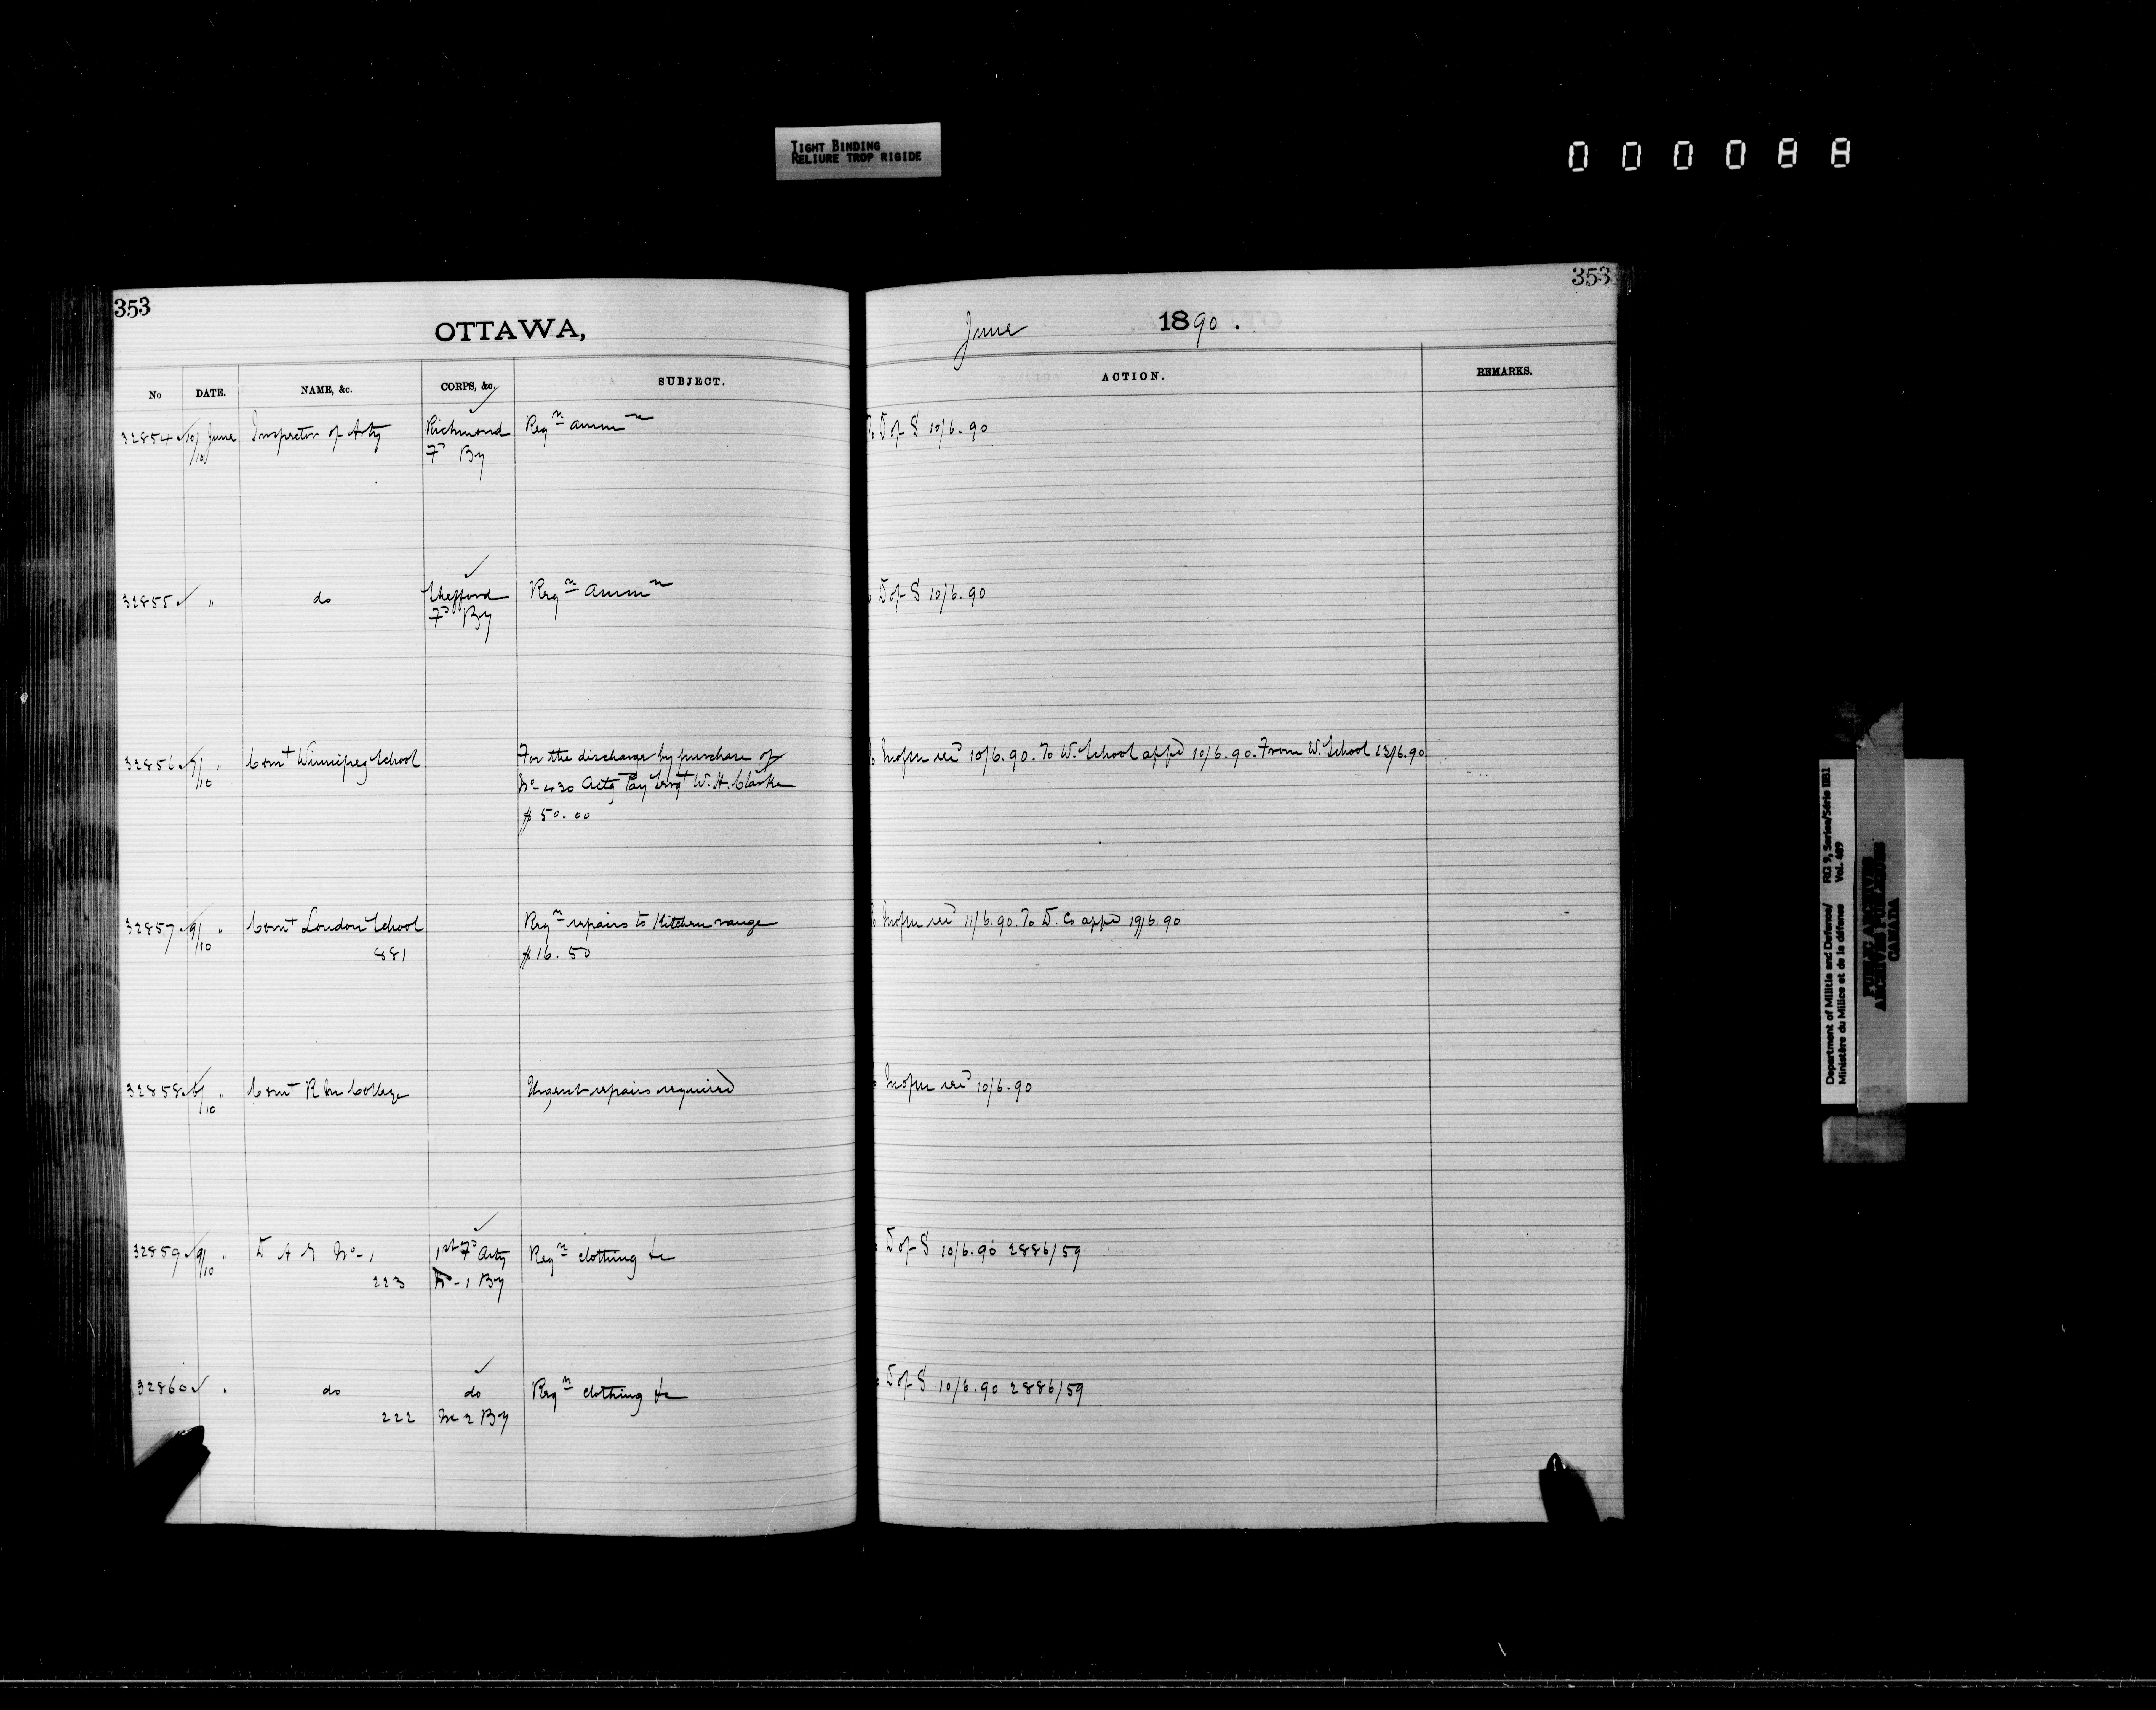 TIGHT BINDING
RELIURE TROP RIGIDE
000088
353
OTTAWA,
No DATE. NAME, &c. CORPS, &c. SUBJECT.
32854 10/10 June Inspector of Arty Richmond Reqn ammn
Fd By
32855 " do Shefford Reqn ammn
Fd By
32856 9/10 " Comt Winnipeg School For the discharge by purchase of
No 430 Actg Pay Sergt W. H. Clarke
$50.00
32857 9/10 " Comt London School Reqn repairs to Kitchen range
881 $16.50
32858 /10 " Comt R M College Urgent repairs required
32859 9/10 " D A G No 1 1st Fd Arty Reqn clothing &c
223 No 1 By
32860 " do do Reqn clothing &c
222 No 2 By
353
June 1890.
ACTION. REMARKS.
To D of S 10/6.90
D of S 10/6.90
10/6.90. To W. School appd 10/6.90. From W. School 23/6.90
11/6.90. To D. Co appd 19/6.90
10/6.90
D of S 10/6.90 2886/59
D of S 10/6.90 2886/59
Department of Militia and Defence/ RG 9, Series/Série IIB1
Ministère du Milice et de la défense Vol. 489
PUBLIC ARCHIVES
ARCHIVES PUBLIQUES
CANADA